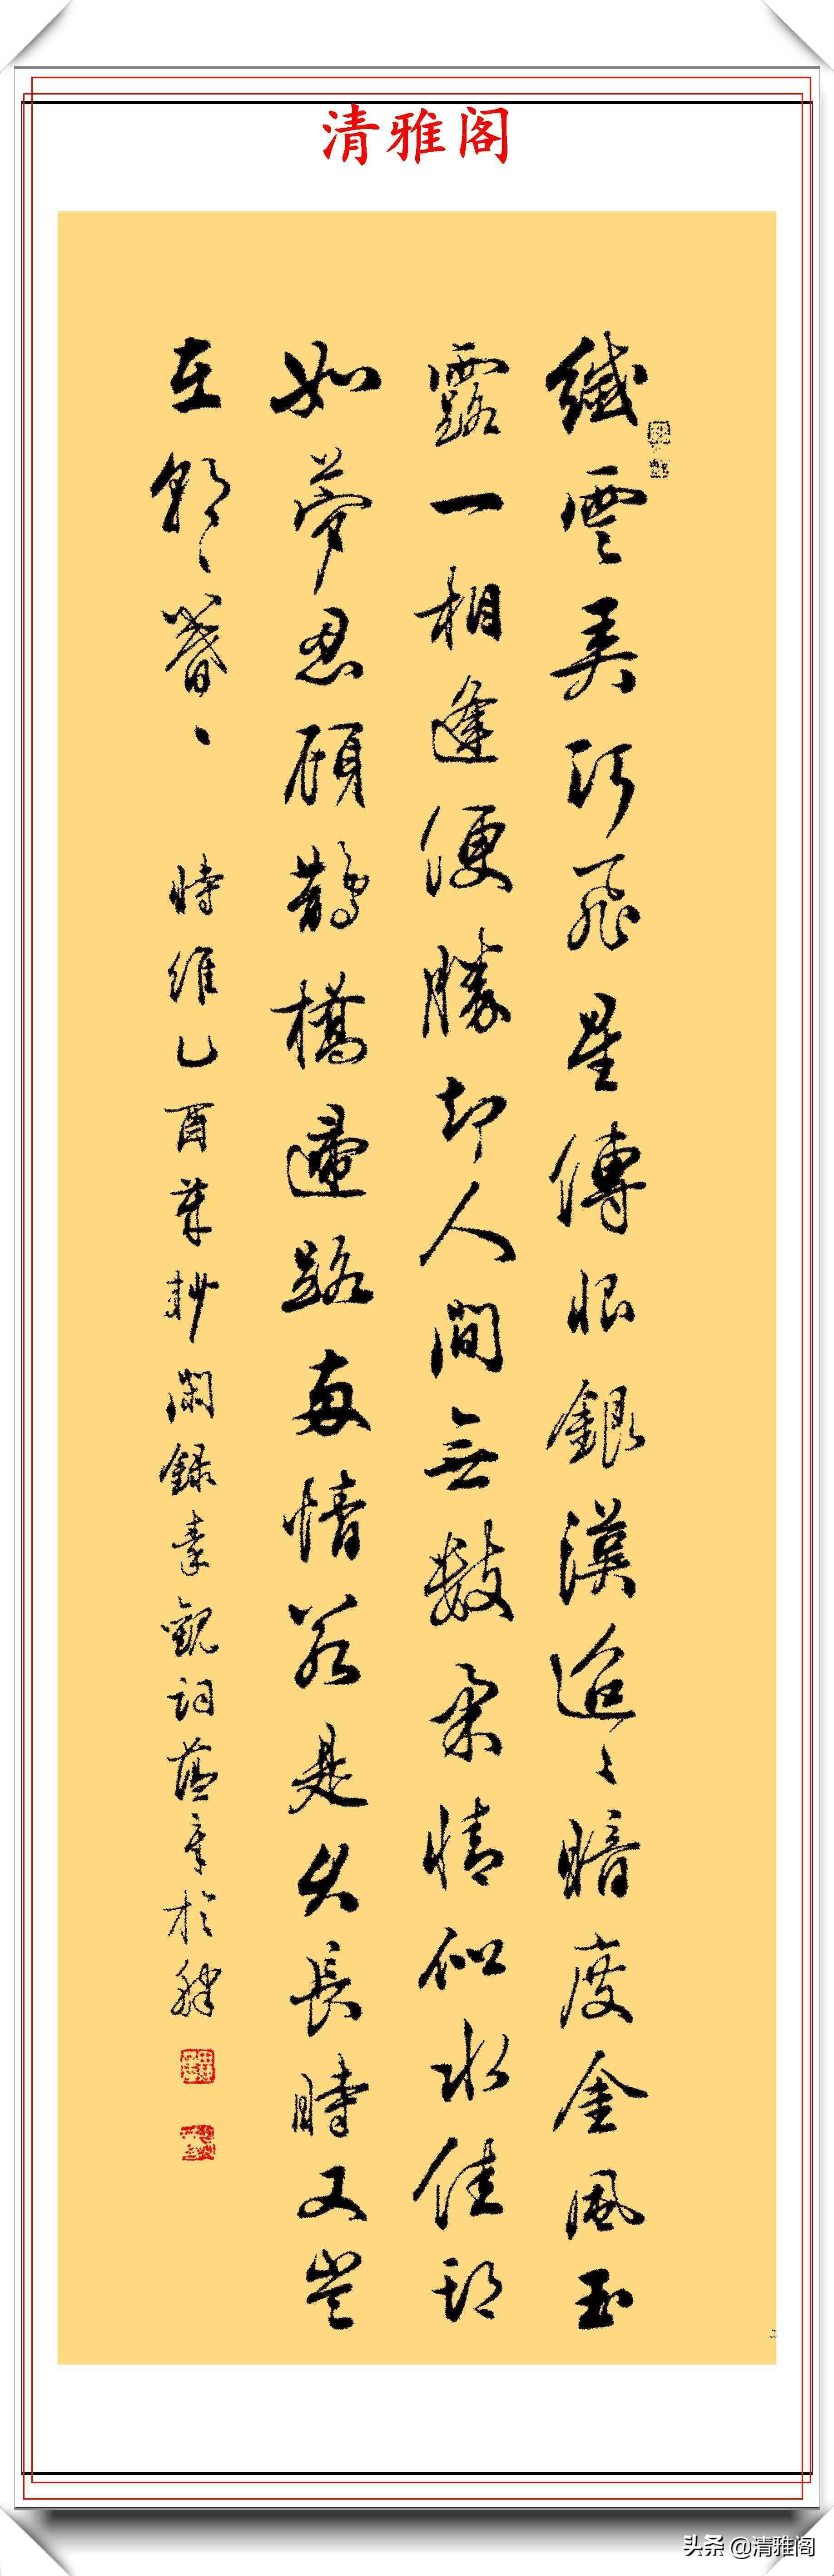 清雅阁
纖雲弄巧飛星傳恨銀漢迢〻暗度金風玉
露一相逢便勝却人間無數柔情似水佳期
如夢忍顧鵲橋歸路兩情若是久長時又豈
在朝〻暮〻
時維乙酉 抄閑錄秦觀詞 於
头条 @清雅阁